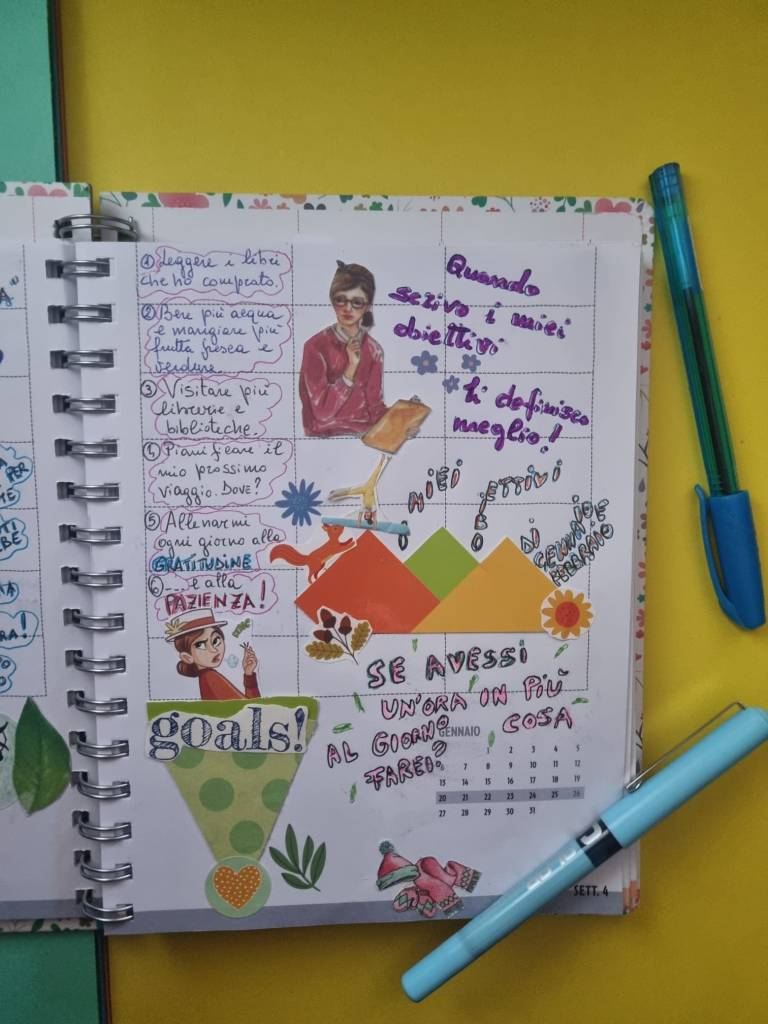 ① Leggere i libri
che ho comprato.
② Bere più acqua
e mangiare più
frutta fresca e
verdure.
③ Visitare più
librerie e
biblioteche.
4. Pianificare il
mio prossimo
viaggio. DOVE?
⑤ Allenarmi
ogni giorno alla
GRATITUDINE
6- .... e alla
PAZIENZA!
Quando
scrivo i miei
obiettivi
li definisco
meglio!
I MIEI OBIETTIVI
DI GENNAIO E
FEBBRAIO
goals!
SE AVESSI
UN'ORA IN PIÙ
AL GIORNO COSA
FAREI?
GENNAIO
1 2 3 4 5
6 7 8 9 10 11 12
13 14 15 16 17 18 19
20 21 22 23 24 25 26
27 28 29 30 31
SETT. 4
PER
ME
RA!